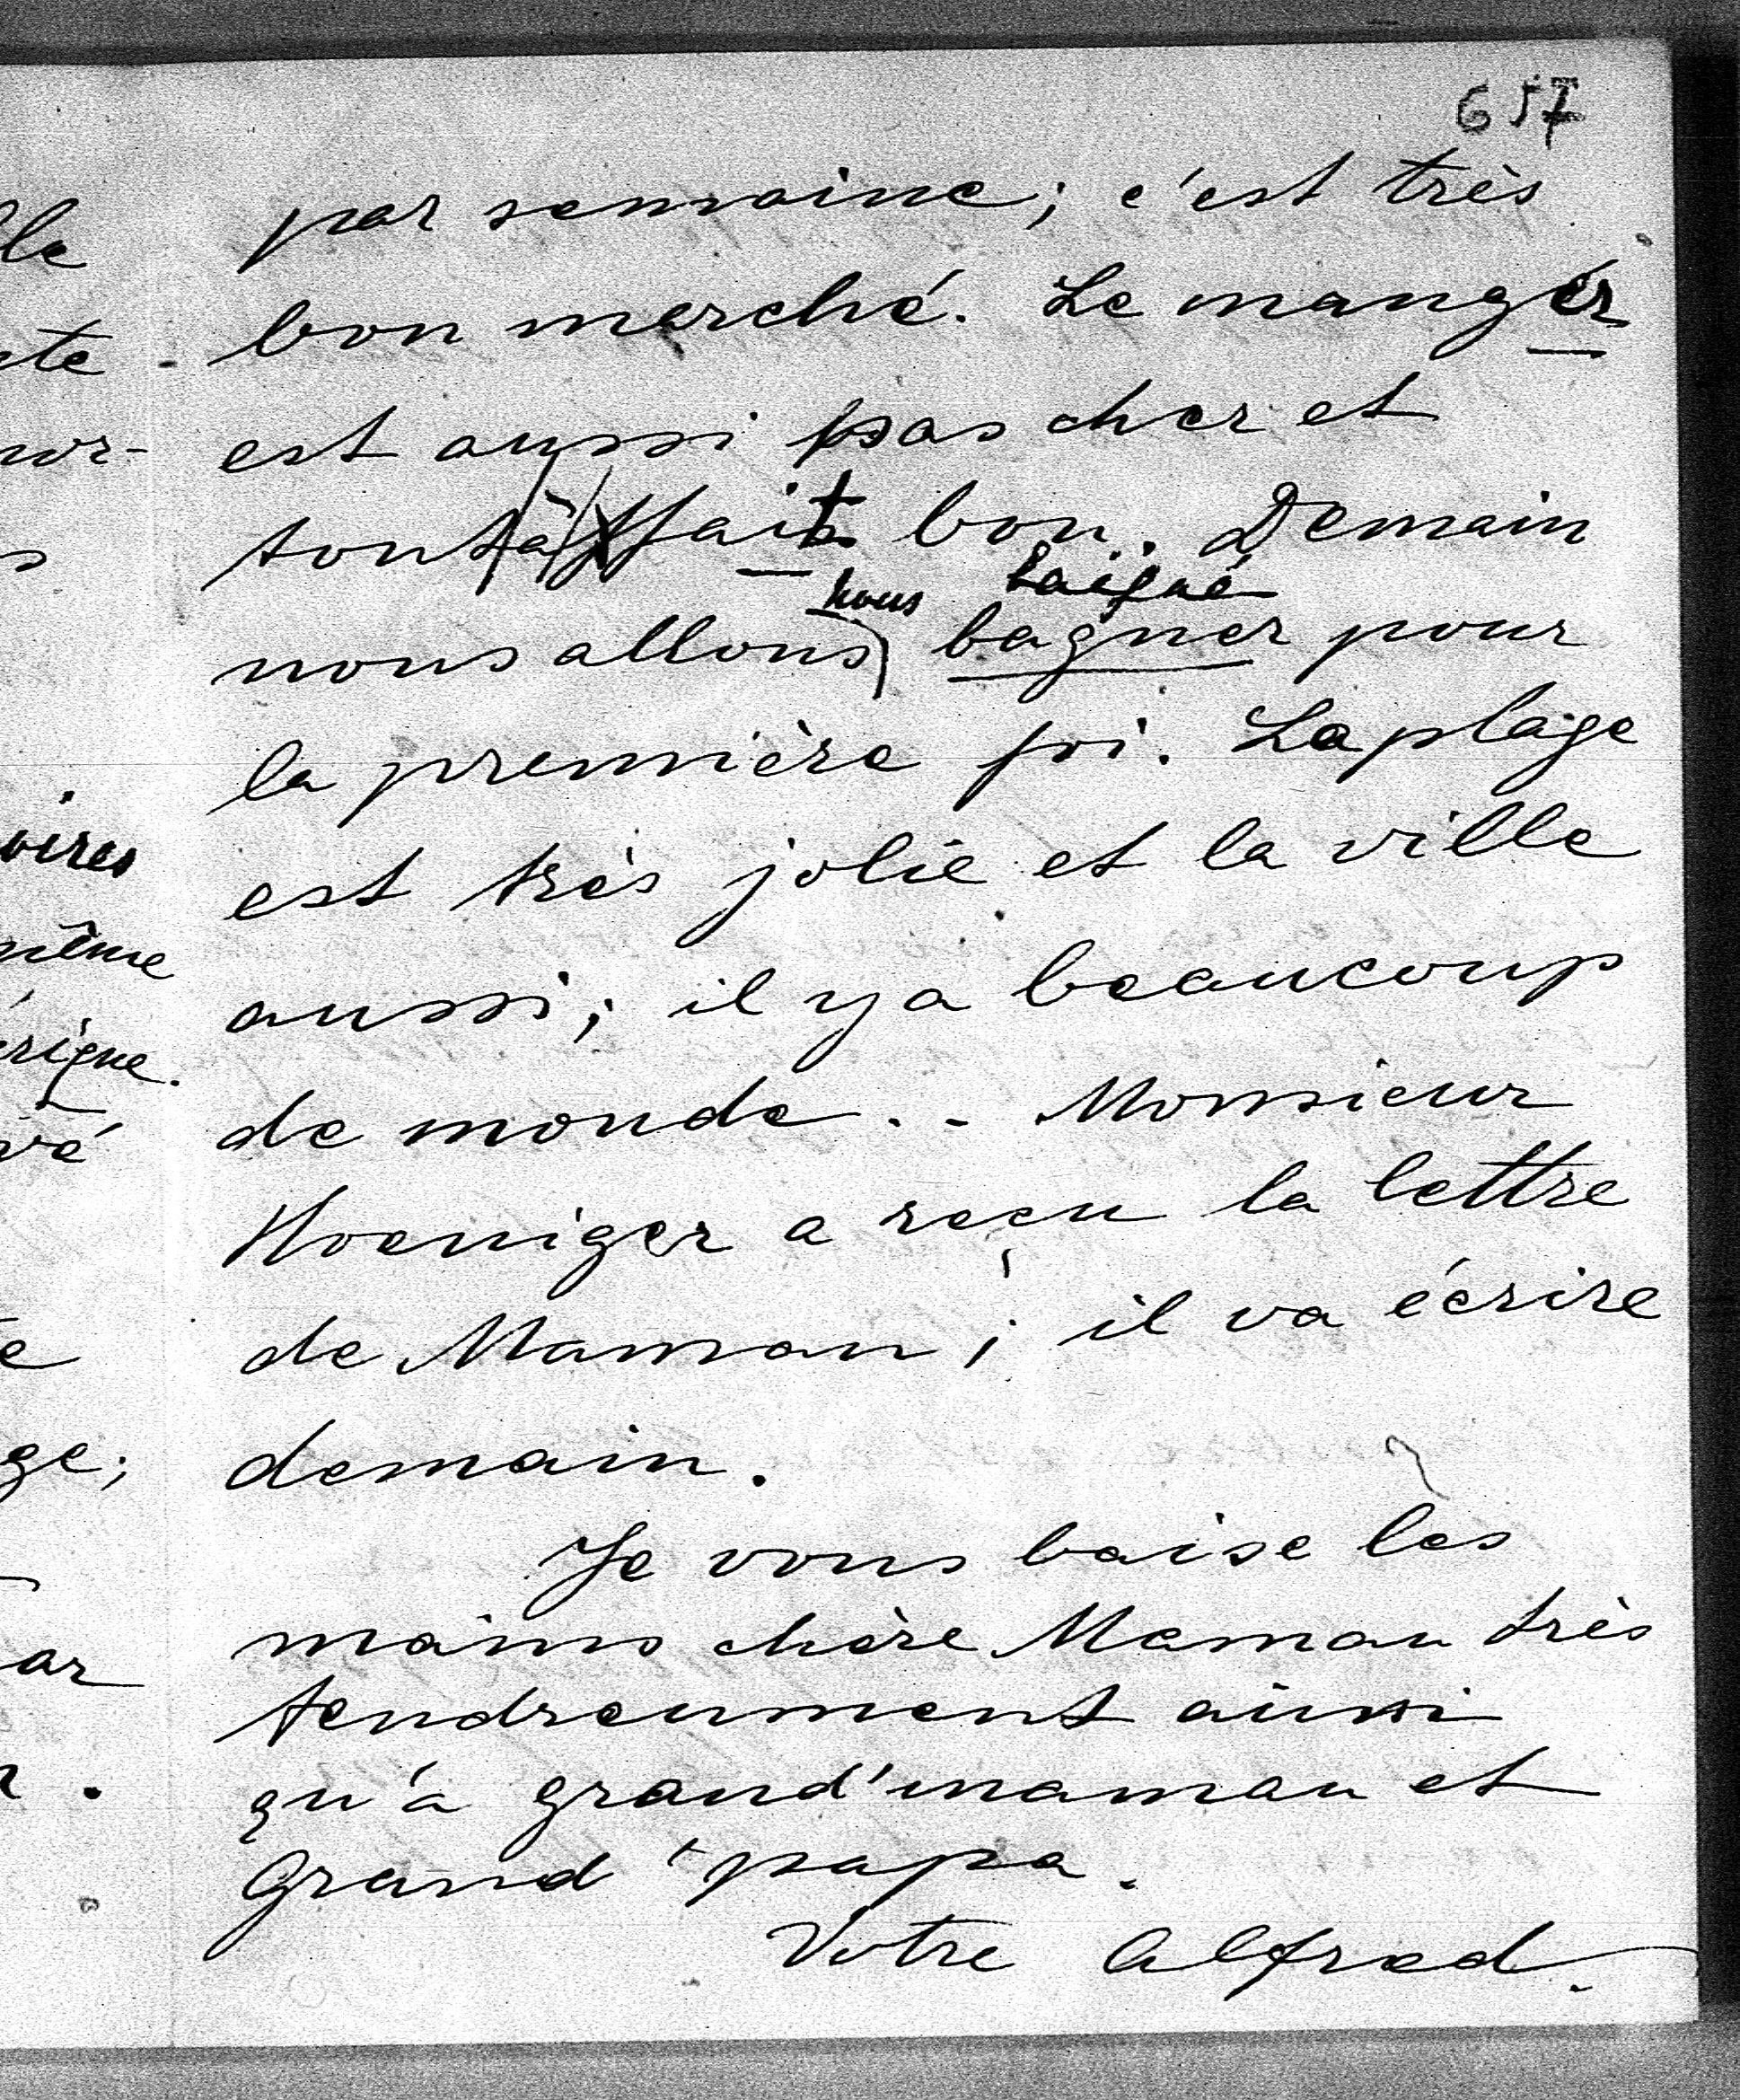 657
par semaine; c'est très
bon merché. Le manger
est aussi pas cher et
tout à ffait bon. Demain
nous baigné
nous allons bagner pour
la première foi. La plage
est très jolie et la ville
aussi; il y a beaucoup
de monde. - Monsieur
Hoeniger a reçu la lettre
de Maman; il va écrire
demain.
Je vous baise les
mains chère Maman très
tendreument ainsi
qu'à grand'maman et
Grand'papa.
Votre Alfred.